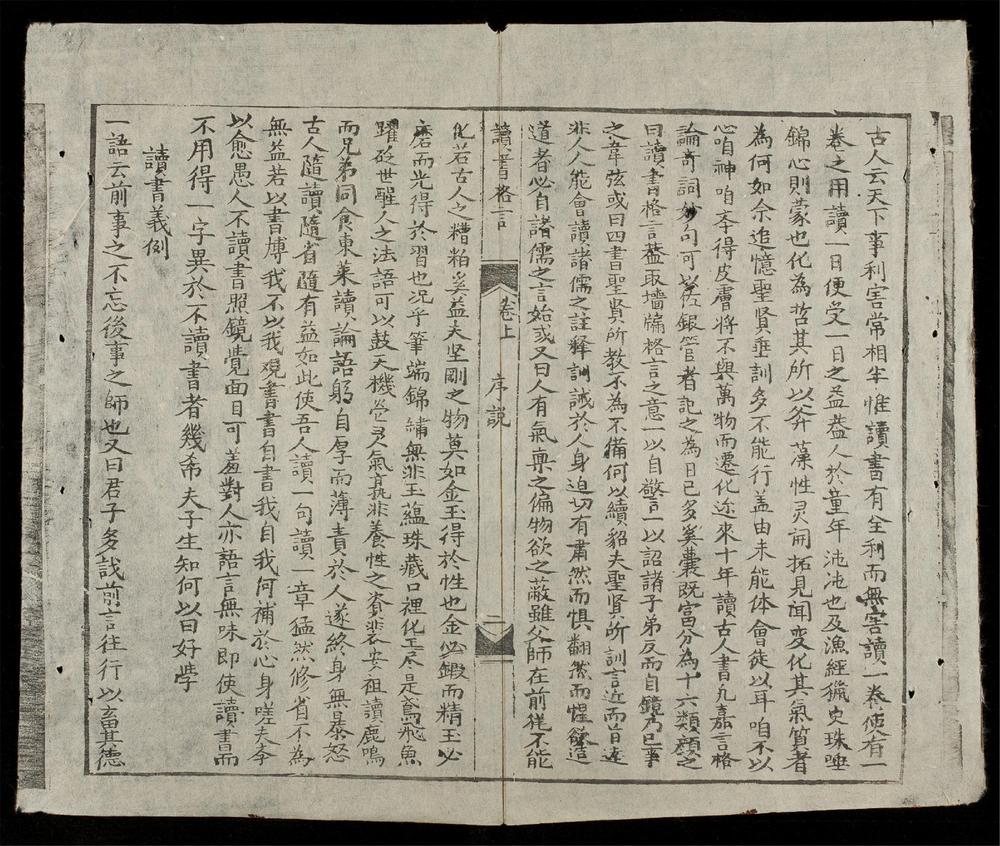 古人云天下事利害常相半惟讀書有全利而無害讀一卷便有一
卷之用讀一日便受一日之益益人於童年沌沌也及漁經獵史珠唾
錦心則蒙也化為哲其所以斧藻性灵開拓見聞变化其氣質者
為何如余追憶聖賢垂訓多不能行盖由未能体會徒以耳咱不以
心咱神咱夲得皮膚將不與萬物而遷化迩來十年讀古人書凡嘉言格
論奇詞妙句可以佐銀管者記之為日已多奚囊既富分為十六類顏之
曰讀書格言葢取墻牖格言之意一以自警一以詔諸子弟反而自鏡乃已事
之韋弦或曰四書聖賢所教不為不備何以續貂夫聖賢所訓言近而旨遠
非人人能會讀諸儒之註釋訓誡於人身迫切有肅然而惧翻然而惺欲造
道者必自諸儒之言始或又曰人有氣禀之偏物欲之蔽雖父師在前徃不能
讀書格言 卷上 序説 二
化若古人之糟粕奚益夫坚剛之物莫如金玉得於性也金必鍜而精玉必
磨而光得於習也况乎筆端錦繡無非玉蕴珠藏口裡化工尽是鳶飛魚
躍砭世醒人之法語可以鼓天機壹灵氣孰非養性之資裴安祖讀鹿鳴
而兄弟同食東莱讀論語躬自厚而薄責於人遂終身無暴怒
古人隨讀隨省隨有益如此使吾人讀一句讀一章猛然修省不為
無益若以書博我不以我覌書書自書我自我何補於心身嗟夫李
以愈愚人不讀書照鏡覺面目可羞對人亦語言無味即使讀書而
不用得一字異於不讀書者幾希夫子生知何以曰好學
讀書義例
一語云前事之不忘後事之師也又曰君子多識前言往行以畜其德